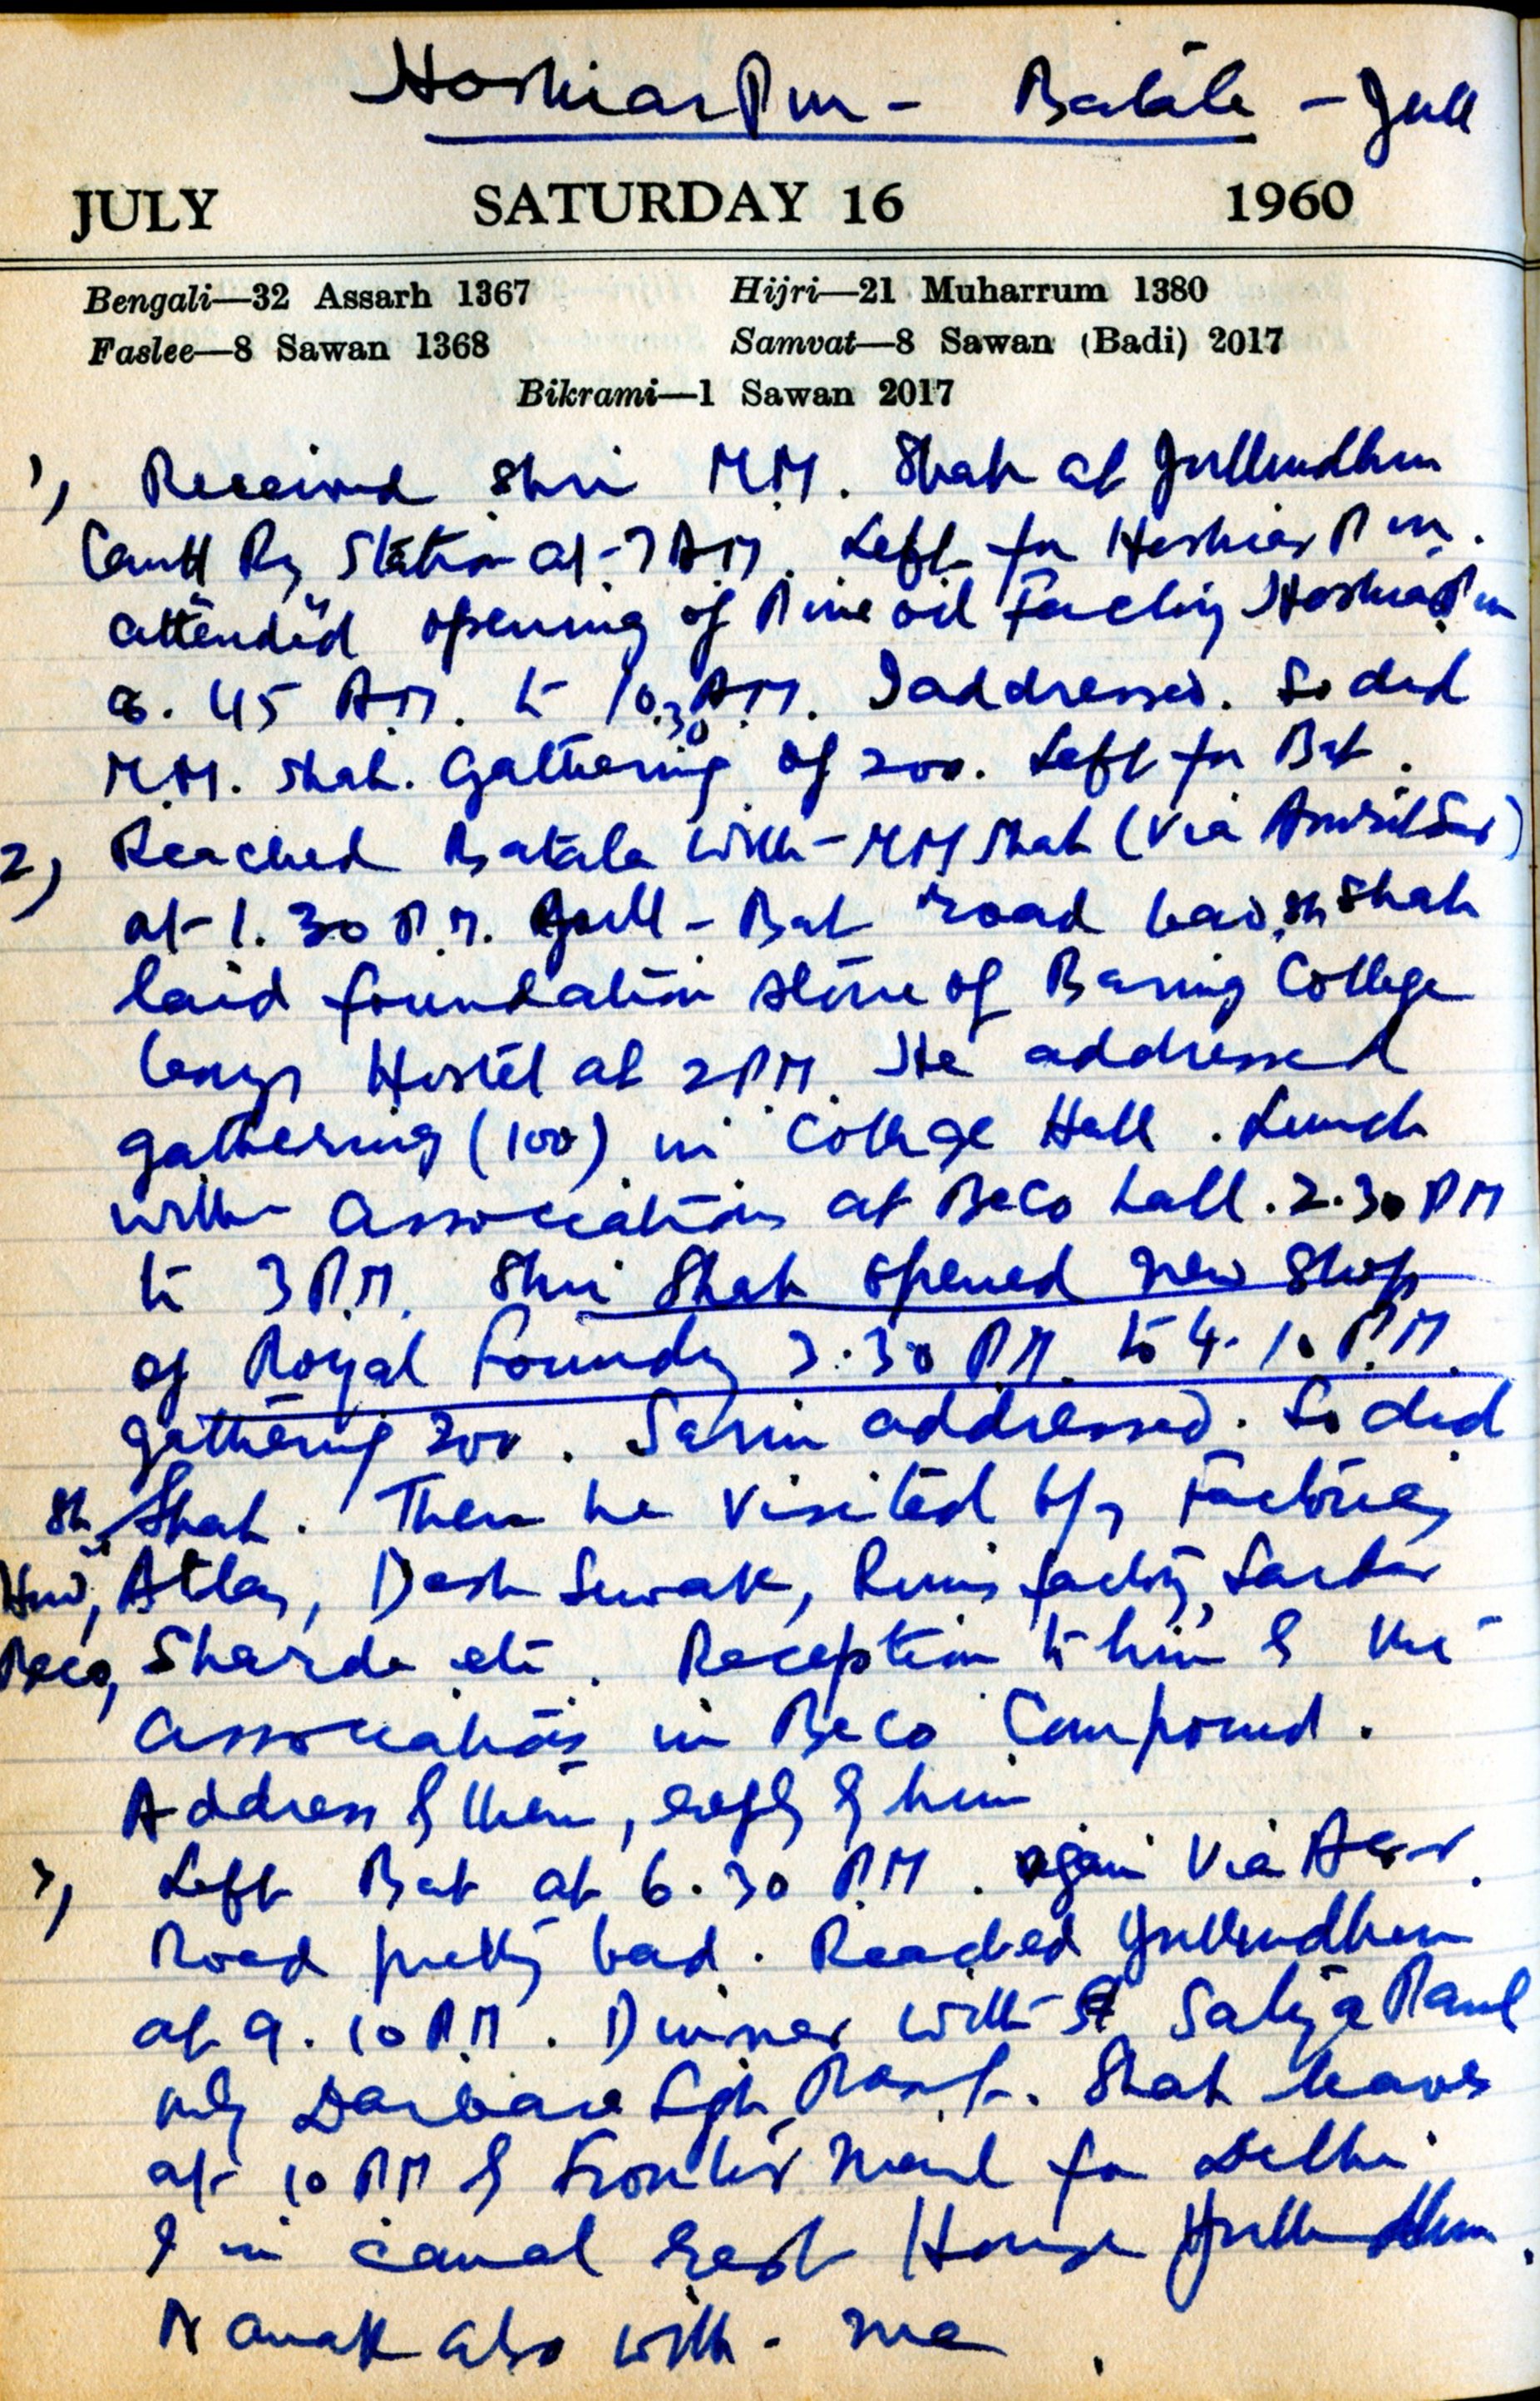 HoshiarPur - Batala - Jull
JULY SATURDAY 16 1960
Bengali—32 Assarh 1367 Hijri—21 Muharrum 1380
Faslee—8 Sawan 1368 Samvat—8 Sawan (Badi) 2017
Bikrami—1 Sawan 2017
1) Received Shri M.M. Shah at Jullundhur
Cantt Ry Station at 7 A.M. Left for HoshiarPur.
attended opening of Pine oil Factory HoshiarPur
8.45 A.M. to 10.30 A.M. I addressed. So did
M.M. Shah. Gathering of 200. Left for Bat.
2) Reached Batala with MM Shah (Via Amritsar)
at 1.30 P.M. Jull - Bat road bad. Sh Shah
laid foundation stone of Baring College
boys Hostel at 2 PM. He addressed
gathering (100) in College Hall. Lunch
with associations at Beco hall. 2.30 PM
to 3 P.M. Shri Shah opened new shop
of Royal Foundry 3.30 P.M. to 4.10 P.M.
gathering 200. Sarin addressed. So did
Sh. Shah. Then he visited Factories
Hind, Atlas, Desh Sewak, factory, Sardar
Beco, Sharda etc. Reception to him by the
associations in Beco Compound.
Address by them, reply by him
3) Left Bat at 6.30 P.M. again Via Asr.
Road pretty bad. Reached Jullundhur
at 9.10 P.M. Dinner with S Satya Paul
Darbara Sgh. Shah leaves
at 10 PM by Frontier Mail for Delhi
I in canal rest House Jullundhur.
Nanak also with me.